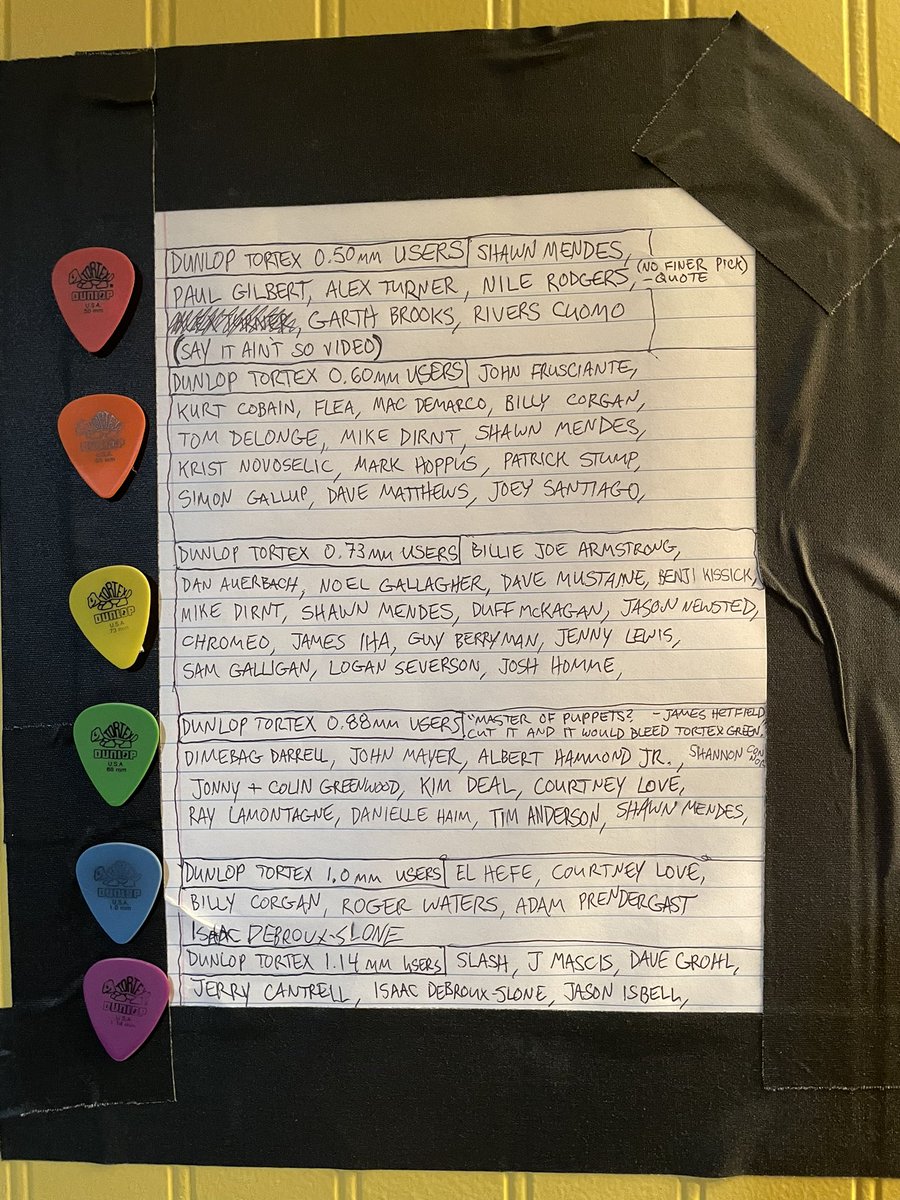 TORTEX
DUNLOP
U.S.A
.50 mm
DUNLOP TORTEX 0.50MM USERS SHAWN MENDES,
PAUL GILBERT, ALEX TURNER, NILE RODGERS, (NO FINER PICK)
-QUOTE
, GARTH BROOKS, RIVERS CUOMO
(SAY IT AIN'T SO VIDEO)
DUNLOP TORTEX 0.60MM USERS JOHN FRUSCIANTE,
KURT COBAIN, FLEA, MAC DEMARCO, BILLY CORGAN,
TOM DELONGE, MIKE DIRNT, SHAWN MENDES,
KRIST NOVOSELIC, MARK HOPPUS, PATRICK STUMP,
SIMON GALLUP, DAVE MATTHEWS, JOEY SANTIAGO,
TORTEX
DUNLOP
U.S.A
73 mm
DUNLOP TORTEX 0.73MM USERS BILLIE JOE ARMSTRONG,
DAN AUERBACH, NOEL GALLAGHER, DAVE MUSTAINE, BENJI KISSICK,
MIKE DIRNT, SHAWN MENDES, DUFF McKAGAN, JASON NEWSTED,
CHROMEO, JAMES IHA, GUY BERRYMAN, JENNY LEWIS,
SAM GALLIGAN, LOGAN SEVERSON, JOSH HOMME,
TORTEX
DUNLOP
U.S.A
88 mm
DUNLOP TORTEX 0.88MM USERS "MASTER OF PUPPETS? - JAMES HETFIELD,
CUT IT AND IT WOULD BLEED TORTEX GREEN."
DIMEBAG DARRELL, JOHN MAYER, ALBERT HAMMOND JR., SHANNON
JONNY + COLIN GREENWOOD, KIM DEAL, COURTNEY LOVE,
RAY LAMONTAGNE, DANIELLE HAIM, TIM ANDERSON, SHAWN MENDES,
U.S.A
1.0 mm
DUNLOP TORTEX 1.0MM USERS EL HEFE, COURTNEY LOVE,
BILLY CORGAN, ROGER WATERS, ADAM PRENDERGAST
ISAAC DEBROUX-SLONE
TORTEX
DUNLOP
U.S.A
1.14 mm
DUNLOP TORTEX 1.14MM USERS SLASH, J MASCIS, DAVE GROHL,
JERRY CANTRELL, ISAAC DEBROUX-SLONE, JASON ISBELL,